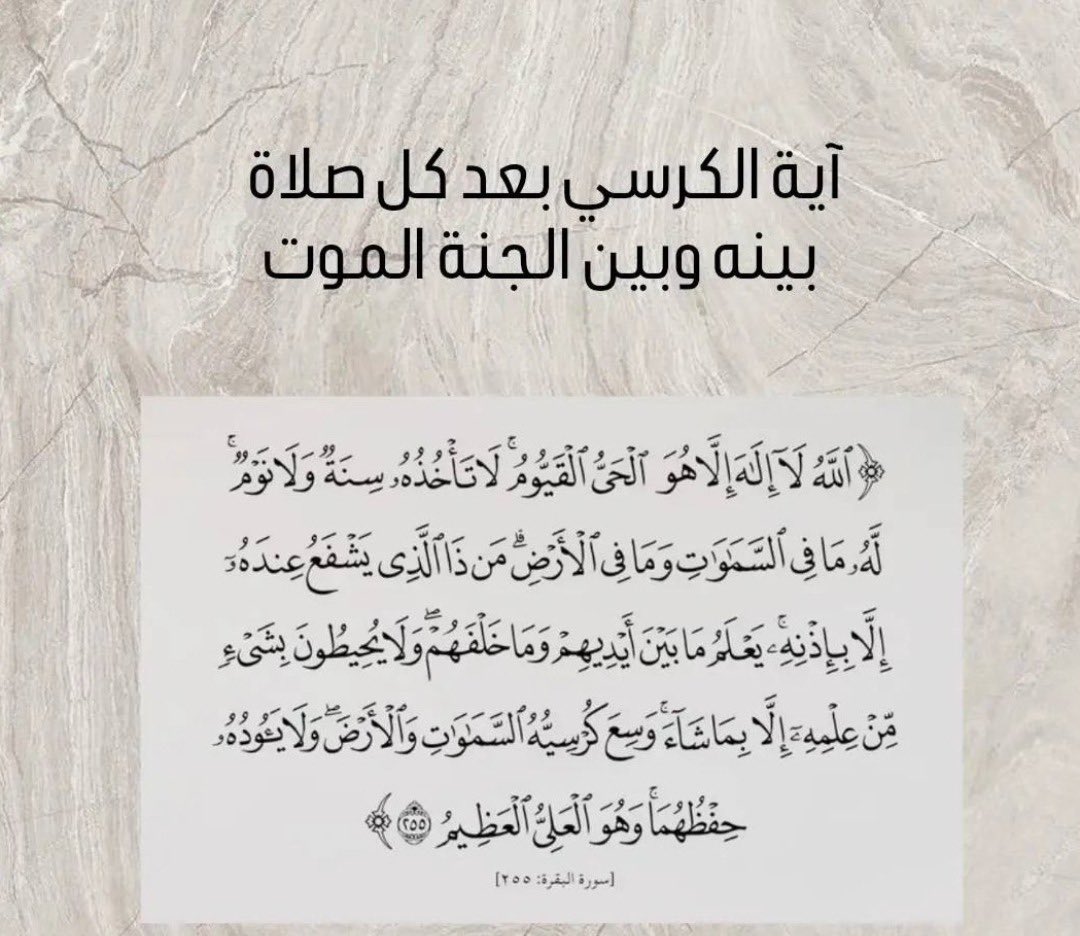 آية الكرسي بعد كل صلاة
بينه وبين الجنة الموت
﴿ٱللَّهُ لَآ إِلَٰهَ إِلَّا هُوَ ٱلْحَىُّ ٱلْقَيُّومُ ۚ لَا تَأْخُذُهُۥ سِنَةٌ وَلَا نَوْمٌ ۚ
لَّهُۥ مَا فِى ٱلسَّمَٰوَٰتِ وَمَا فِى ٱلْأَرْضِ ۗ مَن ذَا ٱلَّذِى يَشْفَعُ عِندَهُۥٓ
إِلَّا بِإِذْنِهِۦ ۚ يَعْلَمُ مَا بَيْنَ أَيْدِيهِمْ وَمَا خَلْفَهُمْ ۖ وَلَا يُحِيطُونَ بِشَىْءٍ
مِّنْ عِلْمِهِۦٓ إِلَّا بِمَا شَآءَ ۚ وَسِعَ كُرْسِيُّهُ ٱلسَّمَٰوَٰتِ وَٱلْأَرْضَ ۖ وَلَا يَـُٔودُهُۥ
حِفْظُهُمَا ۚ وَهُوَ ٱلْعَلِىُّ ٱلْعَظِيمُ ٢٥٥﴾
[سورة البقرة: ٢٥٥]